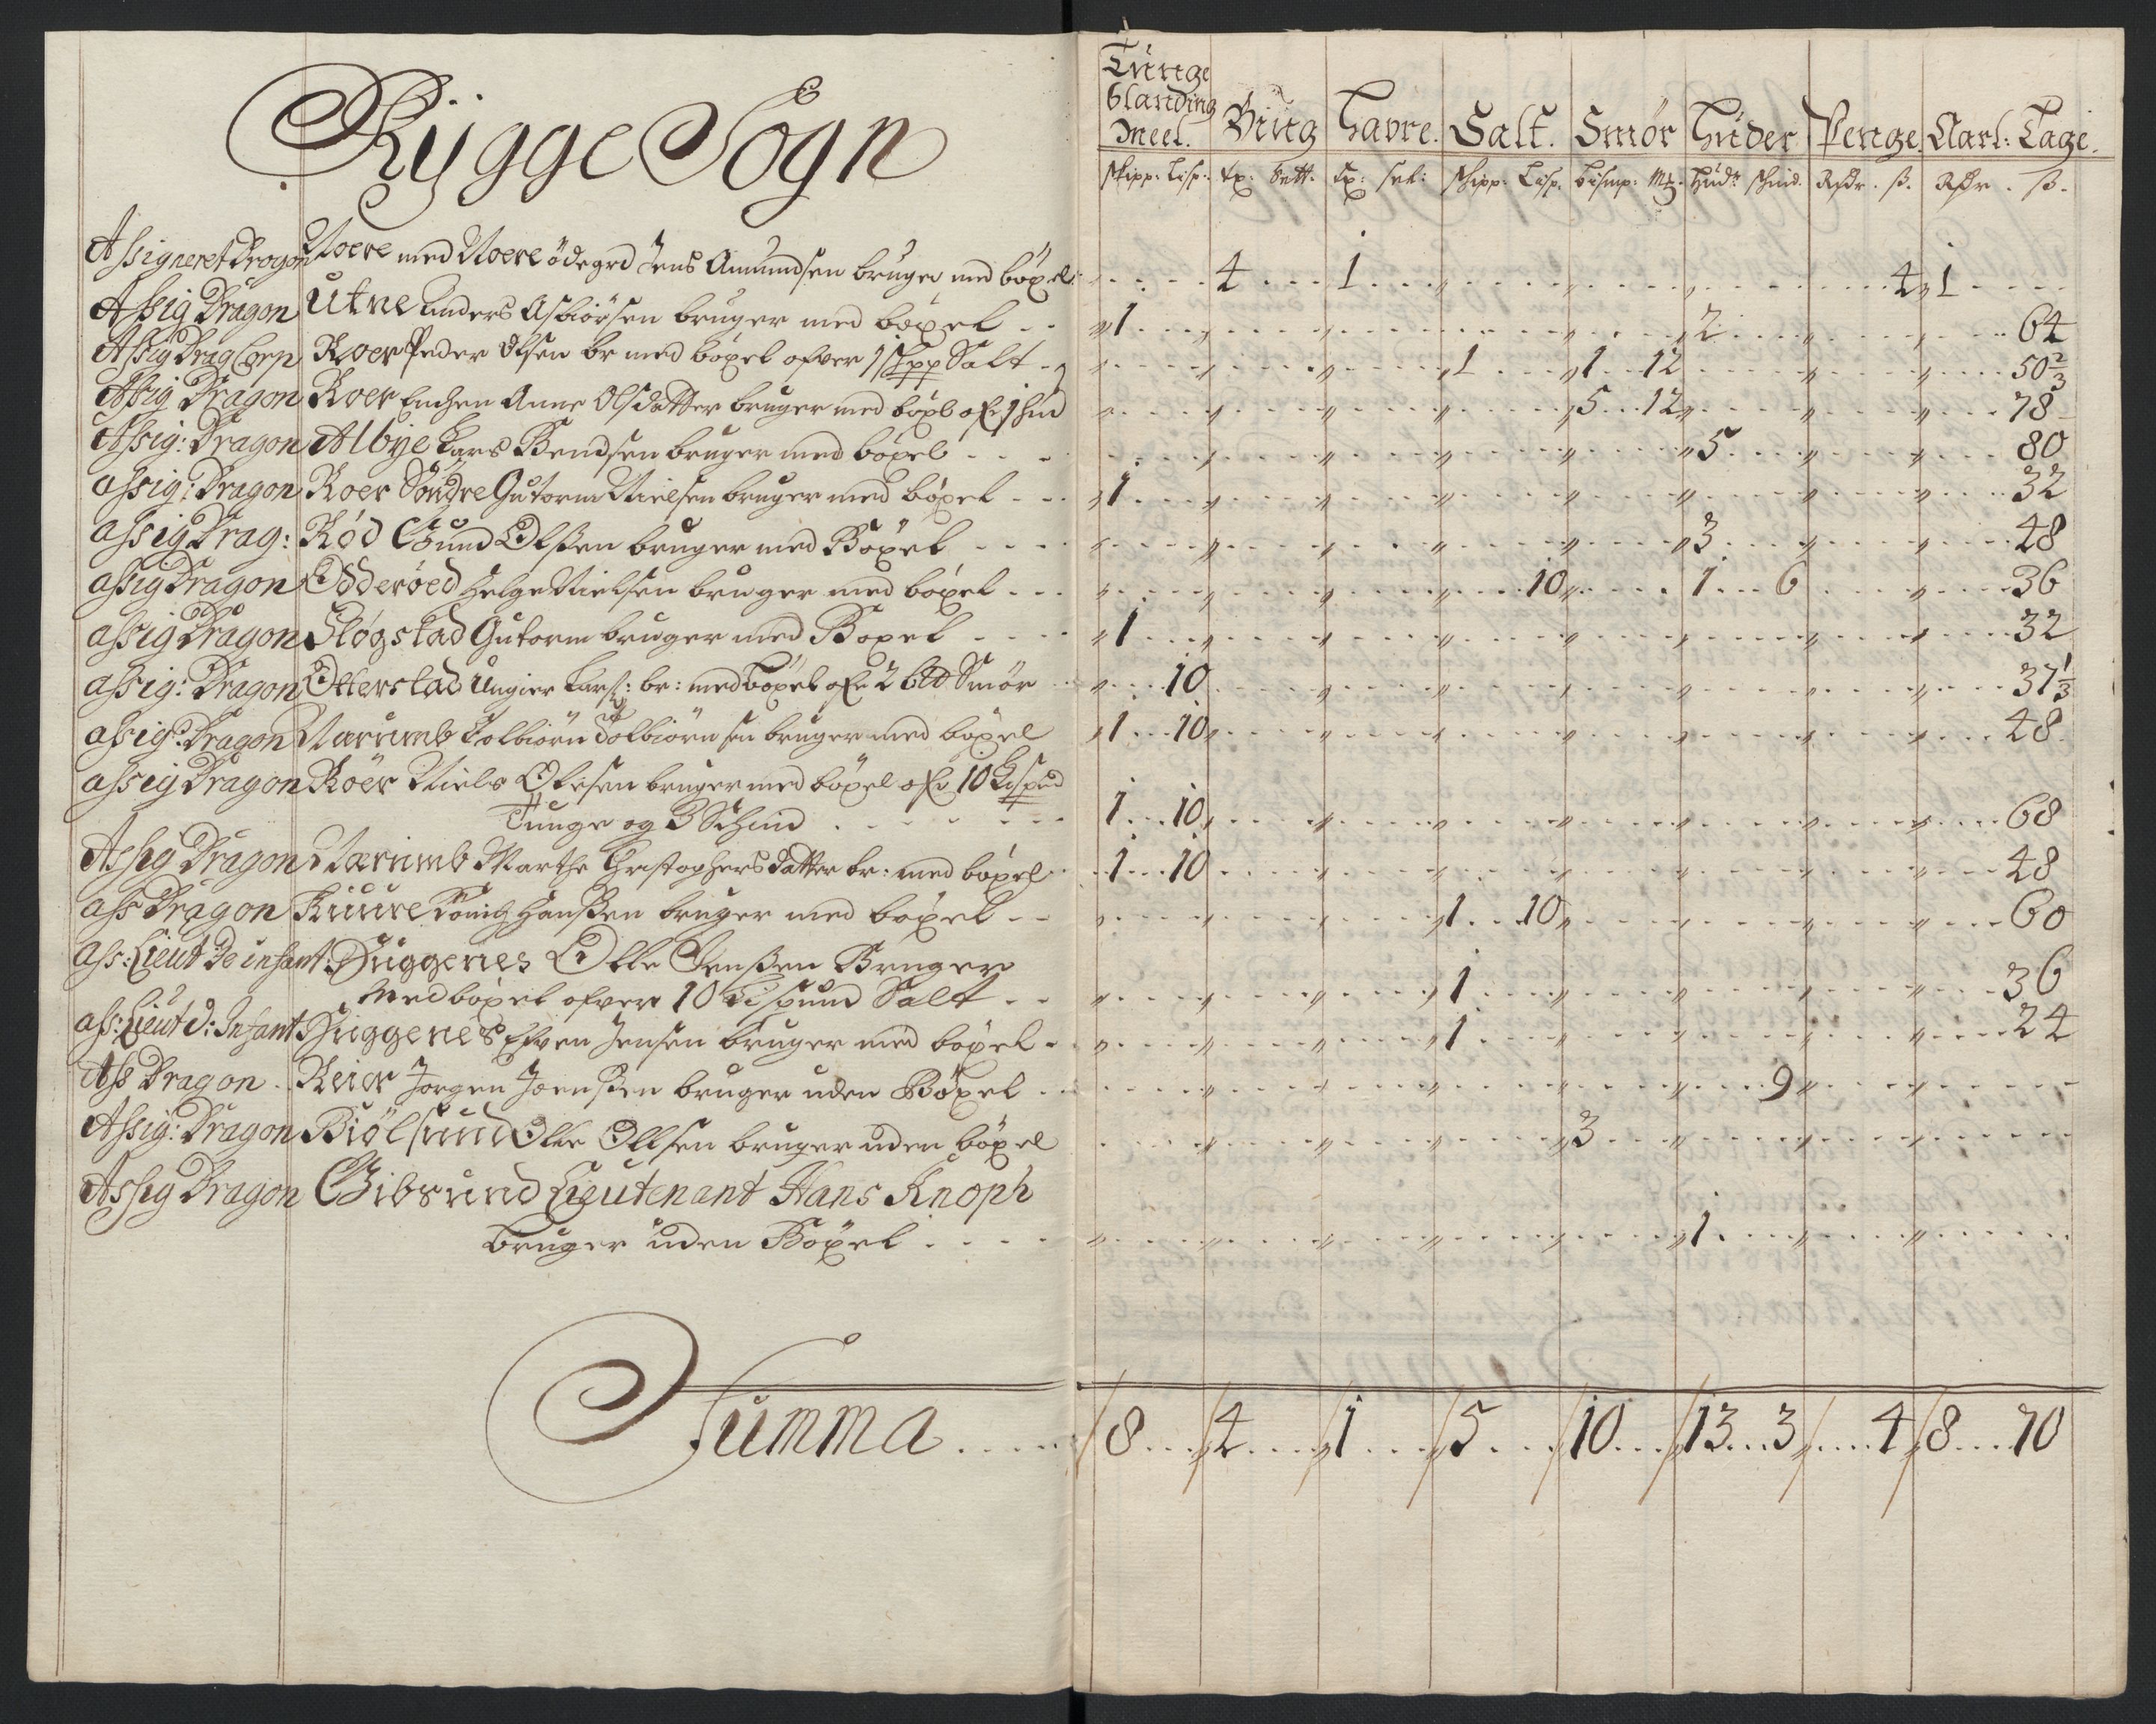 Rÿgge Sogn
Tunge
blanding
Meel. Biug Havre. Salt. Smör Huder Penge. Aarl: Tage.
Skipp: Lisp: Tx: Sett: Tx: set: Skipp: Lisp. bismp: Mk: Hud: Skind. Rdr. ß. Rdr. ß.
Assigneret Dragon Noere med Noere ödegrd Jens Amundsen bruger med böxel 4 1 4 1
Assig Dragon Utne Anders Asbiörsen bruger med böxel 1 2 64
Assig Drag Corp Roer Peder Olsen br med böxel ofver 1 skpp Salt 1 1 12 50 2/3
Assig Dragon Roer Enchen Anne Olsdatter bruger med böxl ofr 1 hud 5 12 78
Assig: Dragon Albye Lars Bendsen bruger med böxel 5 80
assig: Dragon Roer Söndre Gutorm Nielsen bruger med böxel 1 32
assig Drag: Röd Gund Olsen bruger med Böxel 3 48
assig Dragon Odderöed Helge Nielsen bruger med böxel 10 1 6 36
assig Dragon Slögstad Gutorm bruger med Böxel 1 32
assig: Dragon Otterstad Ungier Lars: br: med böxel ofr 2 bld Smör 10 37 1/3
assig: Dragon Nærumb Kolbiörn Tolbiörnsen bruger med böxel 1 10 48
assig Dragon Röer Niels Olesen bruger med böxel ofr 10 Lispnd
Tunge og 3 Schind 1 10 68
Assig Dragon Nærumb Marthe Christophersdatter br: med böxel 1 10 48
ass Dragon Riuure Tönis Hanssen bruger med böxel 1 10 60
ass: Lieut De infant: Huggenes Olle Jenssen Bruger
med böxel ofver 10 Lispund Salt 1 36
ass: Lieut d: Infant Huggenes Efven Jensen bruger med böxel 1 24
Ass Dragon Reier Jörgen Joenssen bruger uden Böxel 9
Assig: Dragon Biölsund Olle Ollsen bruger uden böxel 3
Assig Dragon Gibsund Lieutenant Hans Knoph
bruger uden Böxel 1
Summa 8 4 1 5 10 13 3 4 8 70